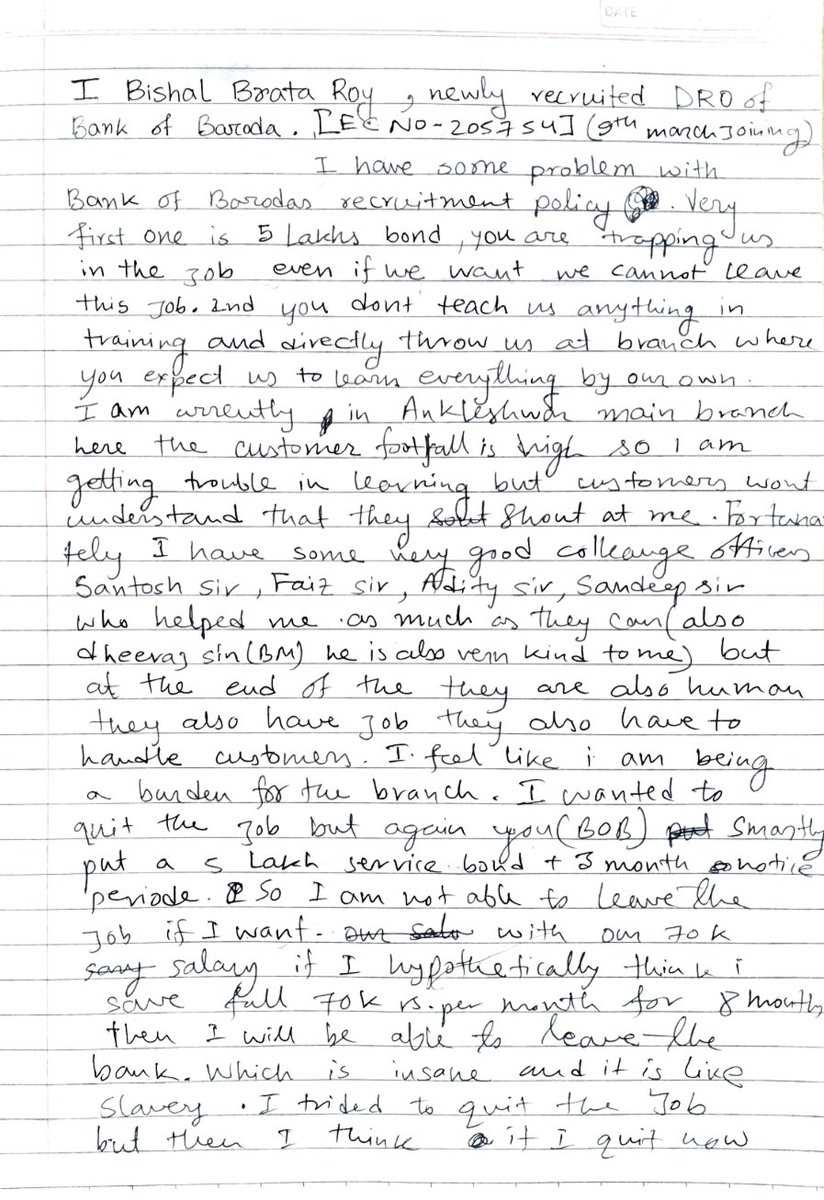 DATE
I Bishal Brata Roy, newly recruited DRO of
Bank of Baroda. [EC NO-205754] (9th march Joining)
I have some problem with
Bank of Barodas recruitment policy . Very
first one is 5 Lakhs bond, you are trapping us
in the job even if we want we cannot leave
this Job. 2nd you dont teach us anything in
training and directly throw us at branch where
you expect us to learn everything by our own.
I am currently in Ankleshwar main branch
here the customer footfall is high so I am
getting trouble in learning but customers wont
understand that they shout at me. Fortuna
tely I have some very good colleauge officers
Santosh sir, Faiz sir, Adity sir, Sandeep sir
who helped me as much as they can (also
dheeraj sir (BM) he is also very kind to me) but
at the end of the they are also human
they also have Job they also have to
handle customers. I feel like i am being
a burden for the branch. I wanted to
quit the Job but again you (BOB) Smartly
put a 5 Lakh service bond + 3 month notice
periode. So I am not able to leave the
Job if I want. with our 70 k
salary if I hypothetically think i
save full 70k rs. per month for 8 months
then I will be able to leave the
bank. Which is insane and it is like
slavery. I trided to quit the Job
but then I think if I quit now